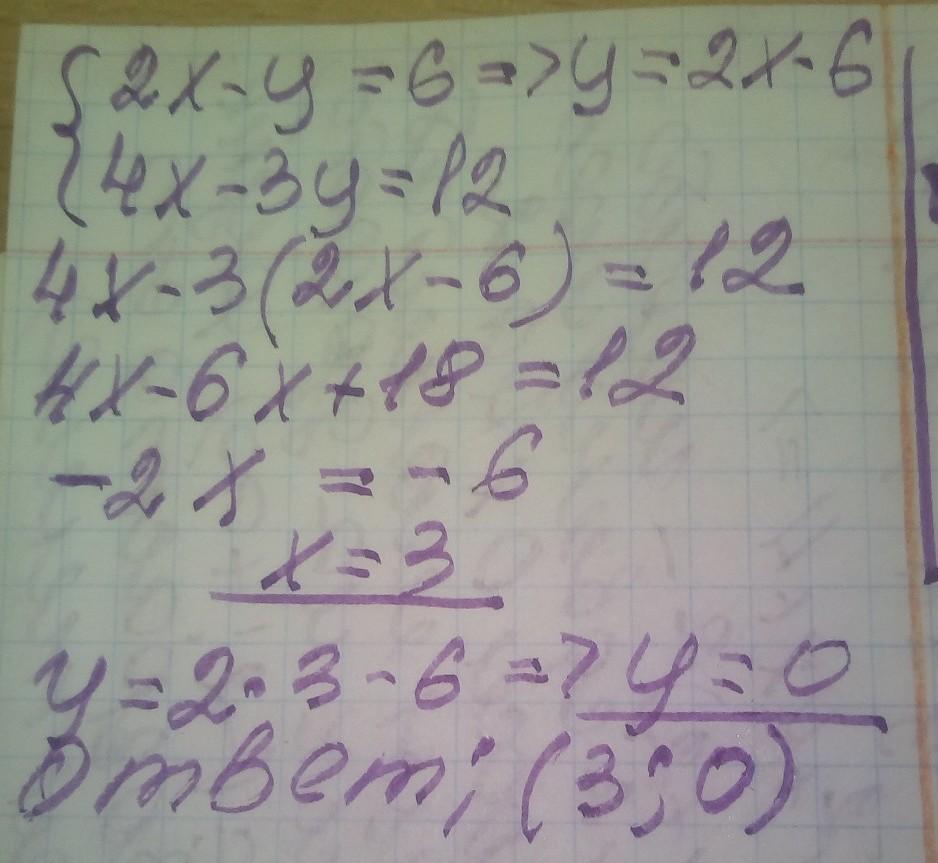 {2x-y=6=>y=2x-6
4x-3y=12
4x-3(2x-6)=12
4x-6x+18=12
-2x=-6
x=3
y=2·3-6=>y=0
Ответ; (3;0)